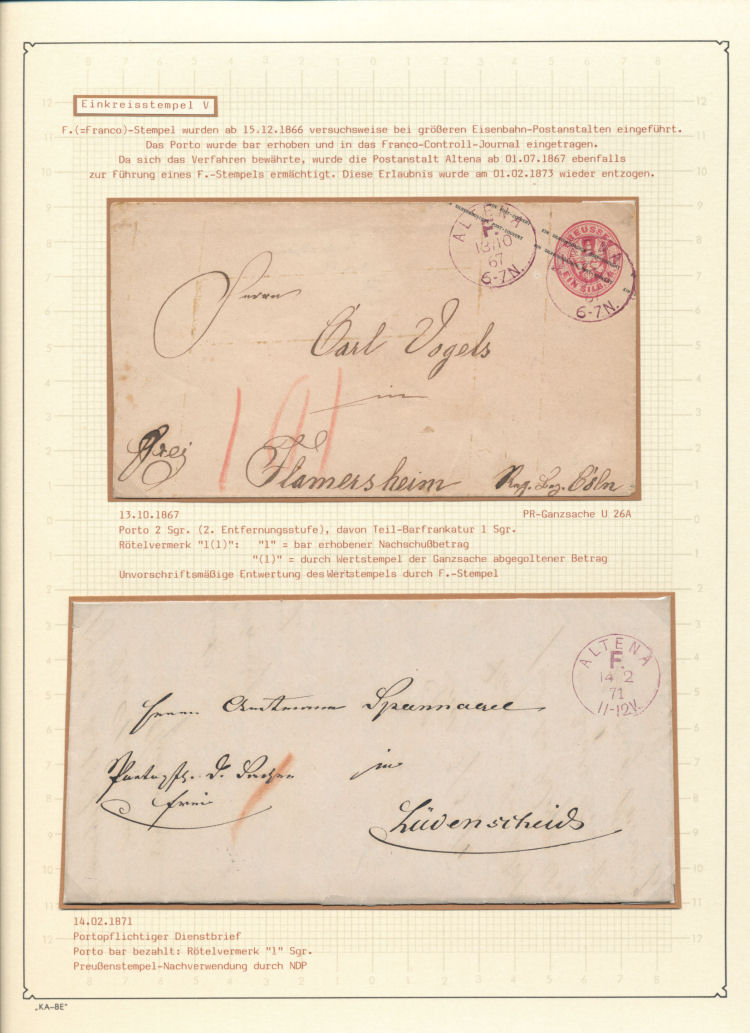 Einkreisstempel V
F.(=Franco)-Stempel wurden ab 15.12.1866 versuchsweise bei größeren Eisenbahn-Postanstalten eingeführt.
Das Porto wurde bar erhoben und in das Franco-Controll-Journal eingetragen.
Da sich das Verfahren bewährte, wurde die Postanstalt Altena ab 01.07.1867 ebenfalls
zur Führung eines F.-Stempels ermächtigt. Diese Erlaubnis wurde am 01.02.1873 wieder entzogen.
ALTENA
F.
13/10
67
6-7N.
PREUSSEN
EIN SILBERGR
6-7N.
Herrn
Carl Vogels
in
frei
Flamersheim Reg. Bez. Cöln
13.10.1867
PR-Ganzsache U 26A
Porto 2 Sgr. (2. Entfernungsstufe), davon Teil-Barfrankatur 1 Sgr.
Rötelvermerk "1(1)": "1" = bar erhobener Nachschußbetrag
"(1)" = durch Wertstempel der Ganzsache abgegoltener Betrag
Unvorschriftsmäßige Entwertung des Wertstempels durch F.-Stempel
ALTENA
F.
14 2
71
11-12V.
Herrn Amtmann Spannagel
in
frei
Lüdenscheid
14.02.1871
Portopflichtiger Dienstbrief
Porto bar bezahlt: Rötelvermerk "1" Sgr.
Preußenstempel-Nachverwendung durch NDP
„KA-BE"